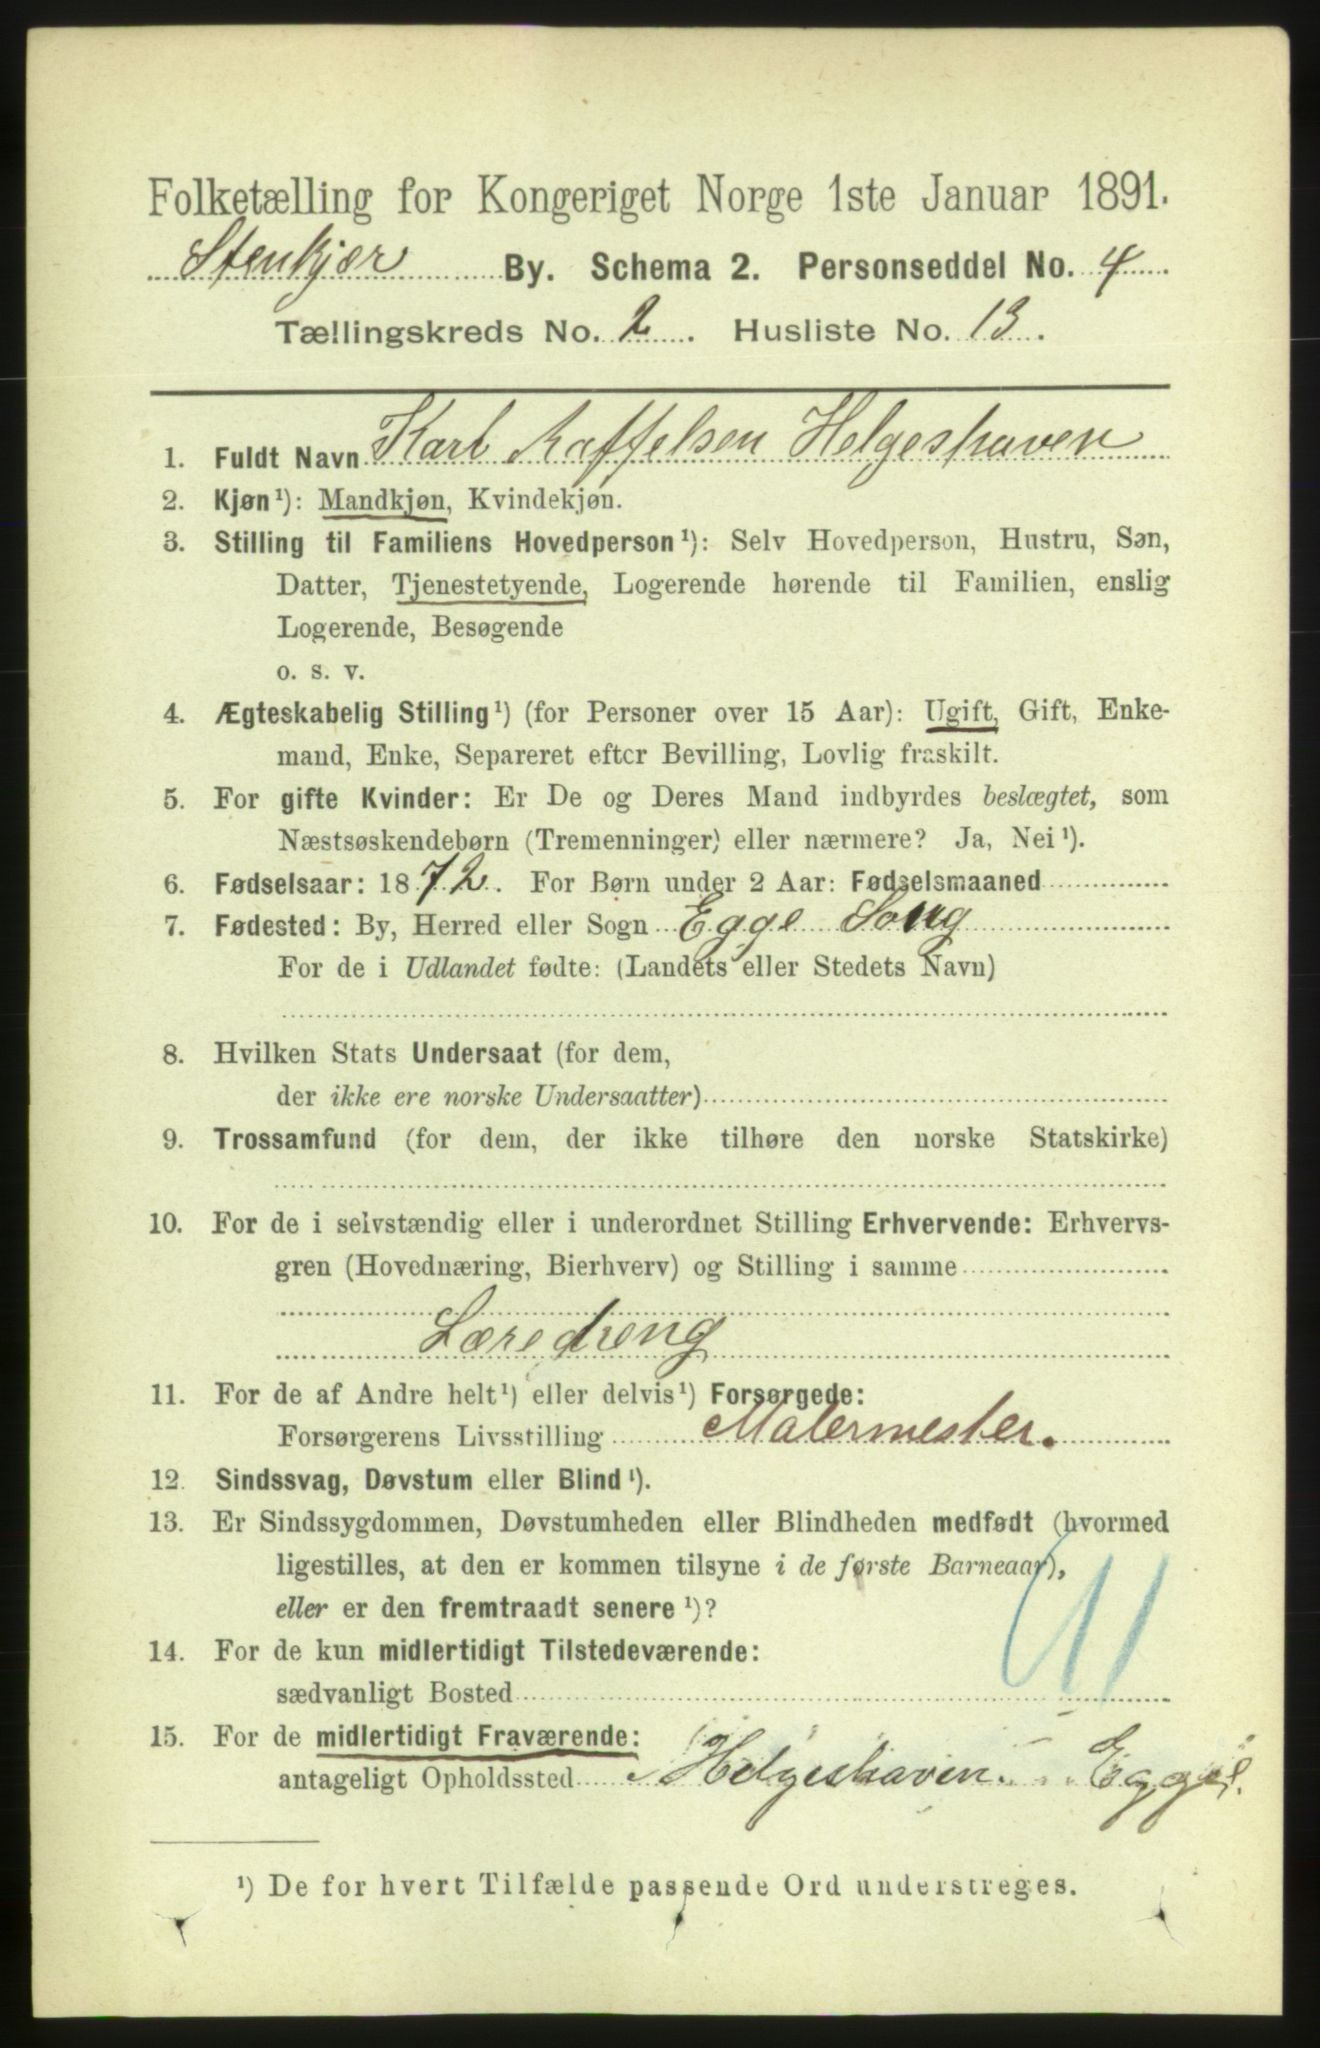 Folketælling for Kongeriget Norge 1ste Januar 1891.
Stenkjær By. Schema 2. Personseddel No. 4
Tællingskreds No. 2. Husliste No. 13.
1. Fuldt Navn Karl Raffelsen Helgeshaven
2. Kjøn¹): Mandkjøn, Kvindekjøn.
3. Stilling til Familiens Hovedperson¹): Selv Hovedperson, Hustru, Søn,
Datter, Tjenestetyende, Logerende hørende til Familien, enslig
Logerende, Besøgende
o. s. v.
4. Ægteskabelig Stilling¹) (for Personer over 15 Aar): Ugift, Gift, Enke-
mand, Enke, Separeret efter Bevilling, Lovlig fraskilt.
5. For gifte Kvinder: Er De og Deres Mand indbyrdes beslægtet, som
Næstsøskendebørn (Tremenninger) eller nærmere? Ja, Nei¹).
6. Fødselsaar: 1872. For Børn under 2 Aar: Fødselsmaaned
7. Fødested: By, Herred eller Sogn Egge Song
For de i Udlandet fødte: (Landets eller Stedets Navn)
8. Hvilken Stats Undersaat (for dem,
der ikke ere norske Undersaatter)
9. Trossamfund (for dem, der ikke tilhøre den norske Statskirke)
10. For de i selvstændig eller i underordnet Stilling Erhvervende: Erhvervs-
gren (Hovednæring, Bierhverv) og Stilling i samme
Læredreng
11. For de af Andre helt¹) eller delvis¹) Forsørgede:
Forsørgerens Livsstilling Malermester.
12. Sindssvag, Døvstum eller Blind¹).
13. Er Sindssygdommen, Døvstumheden eller Blindheden medfødt (hvormed
ligestilles, at den er kommen tilsyne i de første Barneaar),
eller er den fremtraadt senere¹)?
14. For de kun midlertidigt Tilstedeværende:
sædvanligt Bosted
15. For de midlertidigt Fraværende:
antageligt Opholdssted Helgeshaven. Egge
¹) De for hvert Tilfælde passende Ord understreges.